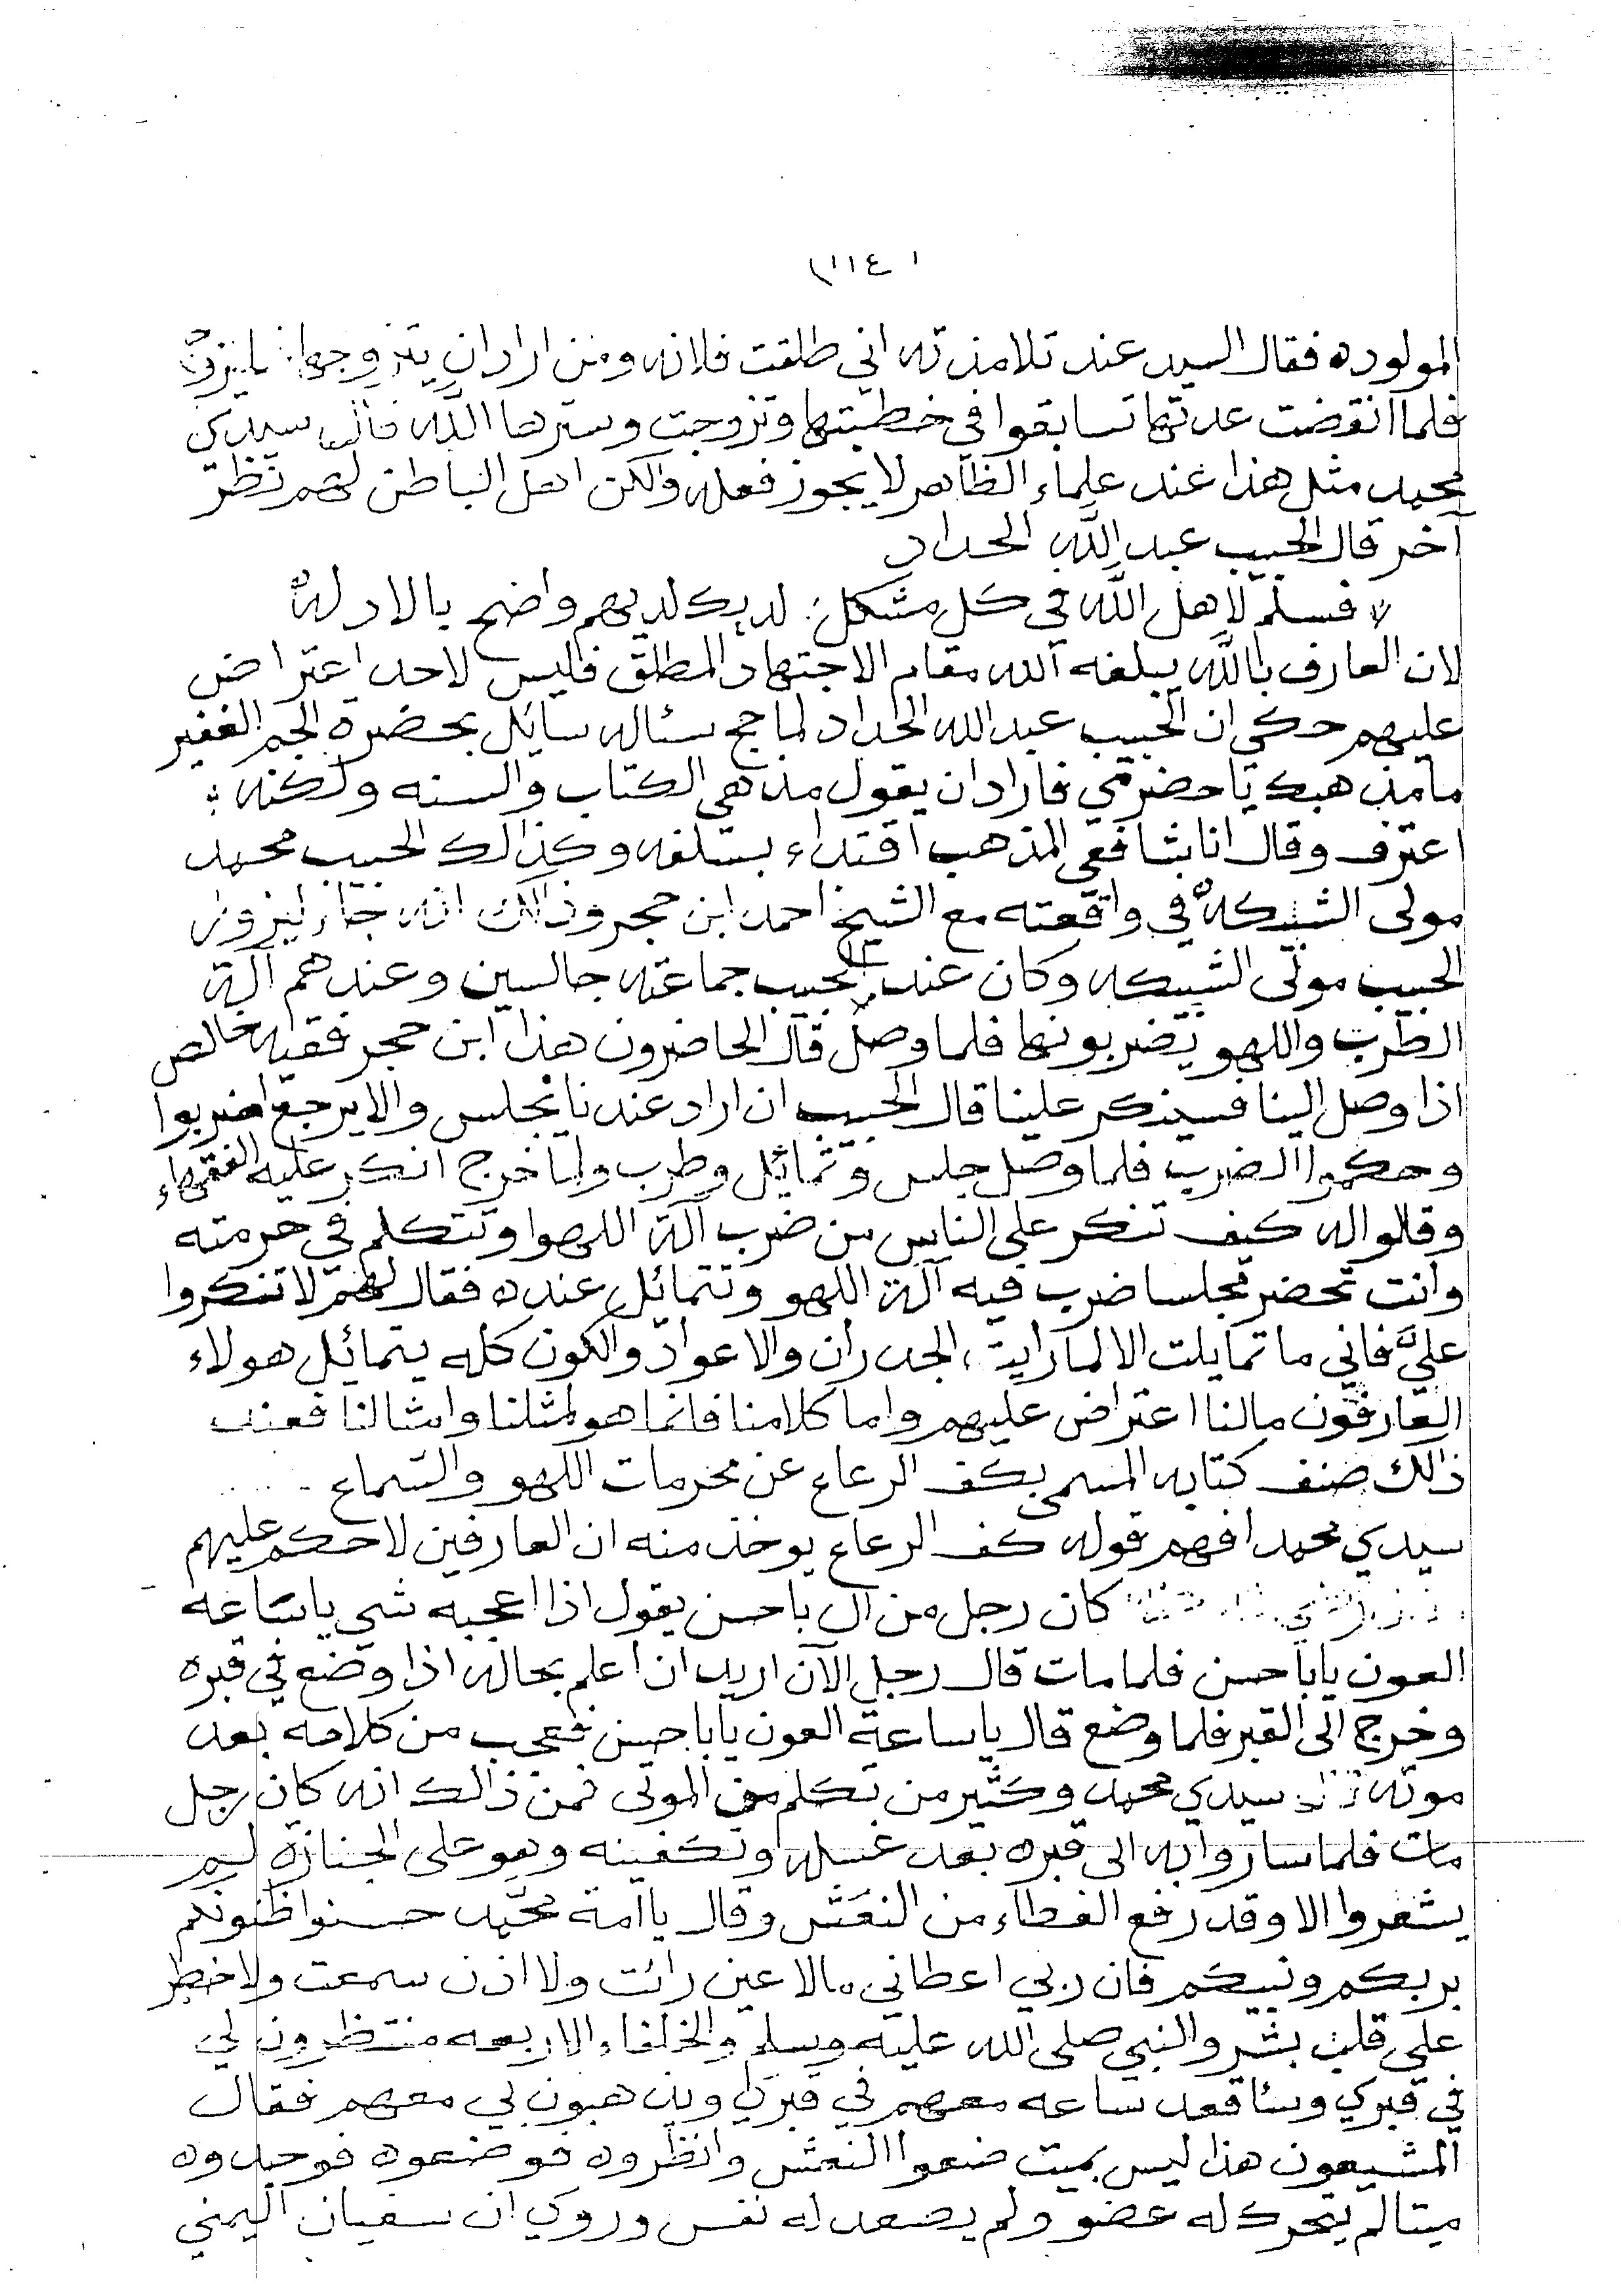 ١١٤
المولوده فقال السيد عند تلامذته اني طلقت فلانه ومن اراد ان يتزوجها
فلما انقضت عدتها تسابقوا في خطبتها وتزوجت وسترها الله قال سيدي
محمد مثل هذا عند علماء الظاهر لا يجوز فعله ولكن اهل الباطن لهم نظر
آخر قال الحبيب عبد الله الحداد
فسلم لاهل الله في كل مشكل : لديك لديهم واضح بالادله
لان العارف بالله يبلغه الله مقام الاجتهاد المطلق فليس لاحد اعتراض
عليهم حكي ان الحبيب عبد الله الحداد لما حج سئاله سايل بحضرة الجم الغفير
ما مذهبك يا حضرمي فاراد ان يقول مذهبي الكتاب والسنه ولكنه
اعترف وقال انا شافعي المذهب اقتداء بسلفه وكذالك الحبيب محمد
مولى الشبيكه في واقعته مع الشيخ احمد ابن حجر وذالك انه جاء ليزور
الحبيب مولى الشبيكه وكان عند الحبيب جماعته جالسين وعندهم آلة
الطرب واللهو يضربونها فلما وصل قال الحاضرون هذا ابن حجر فقيه خالص
اذا وصل الينا فسينكر علينا قال الحبيب ان اراد عندنا يجلس والا يرجع اضربوا
وحكموا الضرب فلما وصل جلس وتمائيل وطرب ولما خرج انكر عليه الفقهاء
وقالوا له كيف تنكر على الناس من ضرب آلة اللهوا وتتكلم في حرمته
وانت تحضر مجلسا ضرب فيه آلة اللهو وتتمائيل عنده فقال لهم لا تنكروا
عليَّ فاني ما تمايلت الا لما رايت الجدران والاعواد والكون كله يتمائيل هولاء
العارفون مالنا اعتراض عليهم واما كلامنا فانما هو لمثلنا وامثالنا فعند
ذالك صنف كتابه المسمى بكف الرعاع عن محرمات اللهو والسماع
سيدي محمد افهم قوله كف الرعاع يوخذ منه ان العارفين لا حكم عليهم
كان رجل من آل باحسن يقول اذا اعجبه شي يا ساعه
العون يا باحسن فلما مات قال رجل الآن اريد ان اعلم بحاله اذا وضع في قبره
وخرج الى القبر فلما وضع قال يا ساعة العون يا باحسن فعجب من كلامه بعد
موته سيدي محمد وكثير من تكلم من الموتى فمن ذالك انه كان رجل
مات فلما ساروا به الى قبره بعد غسله وتكفينه وهو على الجنازه لم
يشعروا الا وقد رفع الغطاء من النعش وقال يا امة محمد حسنوا ظنونكم
بربكم ونبيكم فان ربي اعطاني مالا عين رائت ولا اذن سمعت ولا خطر
على قلب بشر والنبي صلى الله عليه وسلم والخلفاء الاربعه منتظرون لي
في قبري وسئاقعد ساعه معهم في قبري ويذهبون بي معهم فقال
المشيعون هذا ليس بميت ضعوا النعش وانظروه فوضعوه فوجدوه
ميتا لم يتحرك له عضو ولم يصعد له نفس وروي ان سفيان اليمني